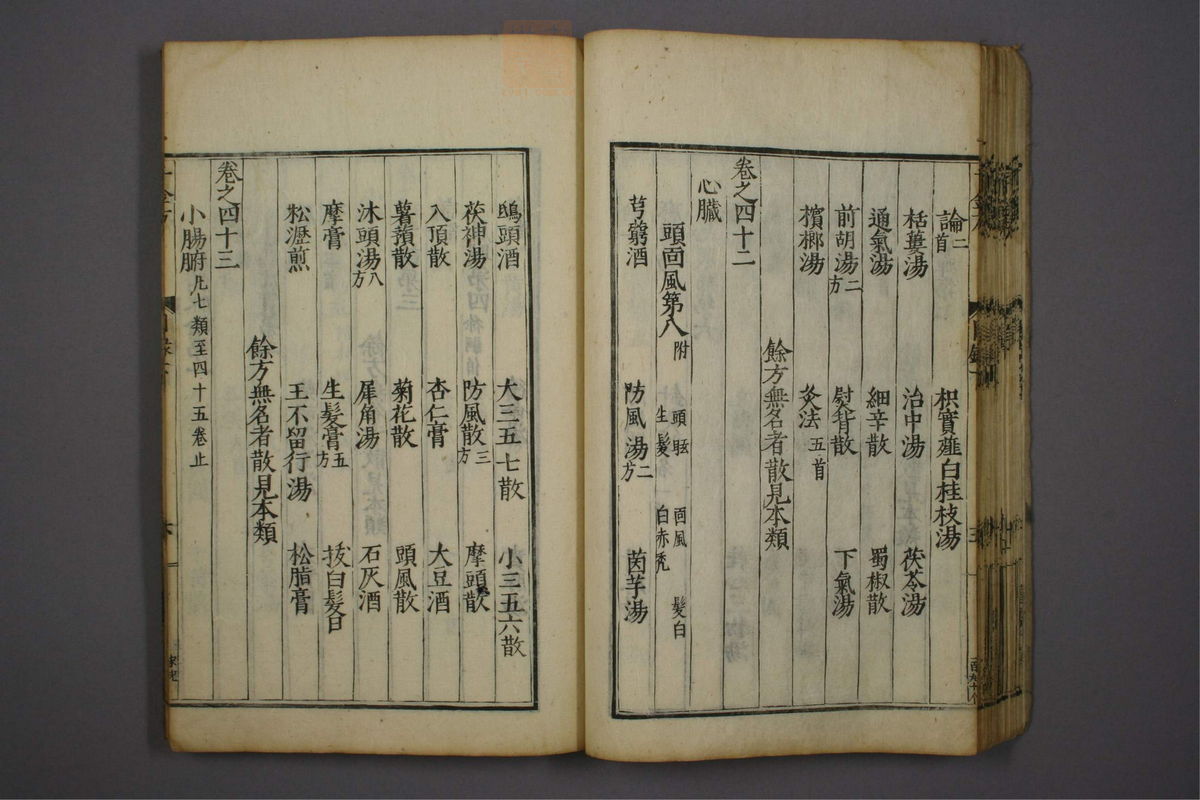 論二首 枳實薤白桂枝湯
栝蔞湯 治中湯 茯苓湯
通氣湯 細辛散 蜀椒散
前胡湯二方 熨背散 下氣湯
檳榔湯 灸法五首
餘方無名者散見本類
卷之四十二
心臟
頭面風第八 附 頭眩 面風 髮白 生髮 白赤禿
芎藭酒 防風湯二方 茵芋湯
鴟頭酒 大三五七散 小三五六散
茯神湯 防風散三方 摩頭散
入頂散 杏仁膏 大豆酒
薯蕷散 菊花散 頭風散
沐頭湯八方 犀角湯 石灰酒
摩膏 生髮膏五方 拔白髮日
松瀝煎 王不留行湯 松脂膏
餘方無名者散見本類
卷之四十三
小腸腑凡七類至四十五卷止